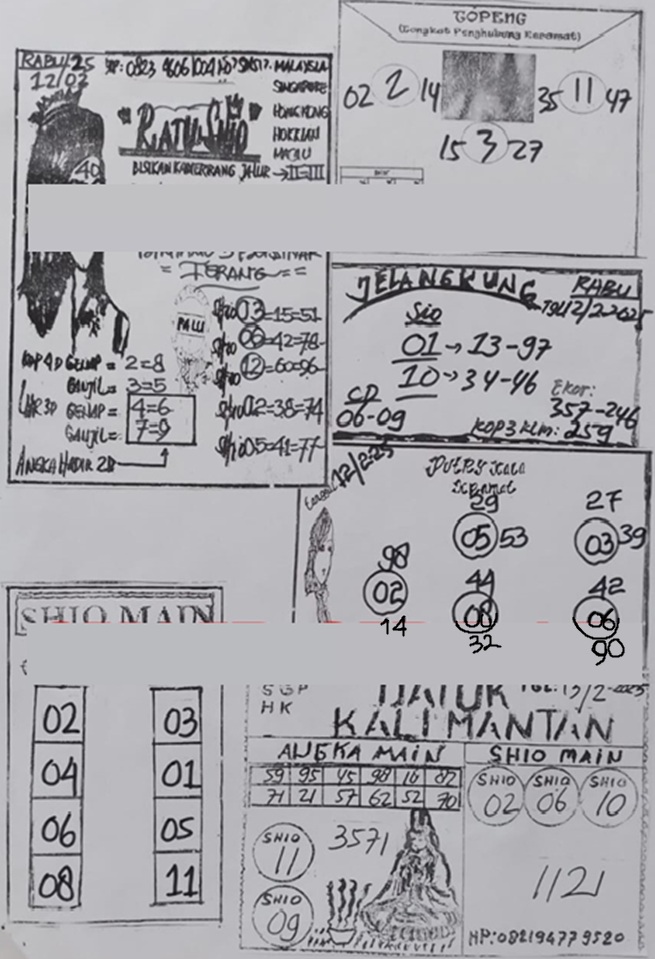 RABU/25
12/02
HP: 0823 4606 1004
MALAYSIA
SINGAPORE
HONGKONG
HOKKIAN
MACAU
RATU SHIO
40
BISIKAN KATERRANG JALUR → II=III
= TERANG = =
PALU
Shio 03=15=51
Shio 06=42=78
Shio 12=60=96
Shio 02=38=74
Shio 05=41=77
KOP 4D GENAP = 2=8
GANJIL = 3=5
GENAP = 4=6
GANJIL = 7=9
ANGKA HADIR 2D
TOPENG
(Tongkat Penghubung Keramat)
02 2 14
35 11 47
15 3 27
JELANGKUNG
RABU
TGL 12/2-2025
Sio
01 → 13-97
10 → 34-46
CD
06-09
Ekor:
357-246
KOP 3 KLM: 259
12/2-25
PUTRI
Keramat
29
05 53
27
03 39
98
02
14
44
08
32
42
06
90
SHIO MAIN
02 03
04 01
06 05
08 11
SGP
HK
DATUK
TGL: 13/2-2025
KALIMANTAN
ANGKA MAIN
59 95 45 98 16 87
71 21 57 62 52 70
SHIO
11
3571
SHIO
09
SHIO MAIN
SHIO SHIO SHIO
02 06 10
1121
HP: 082194779520